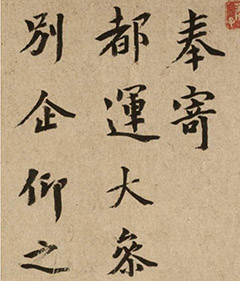 奉寄
都運大叅
別企仰之